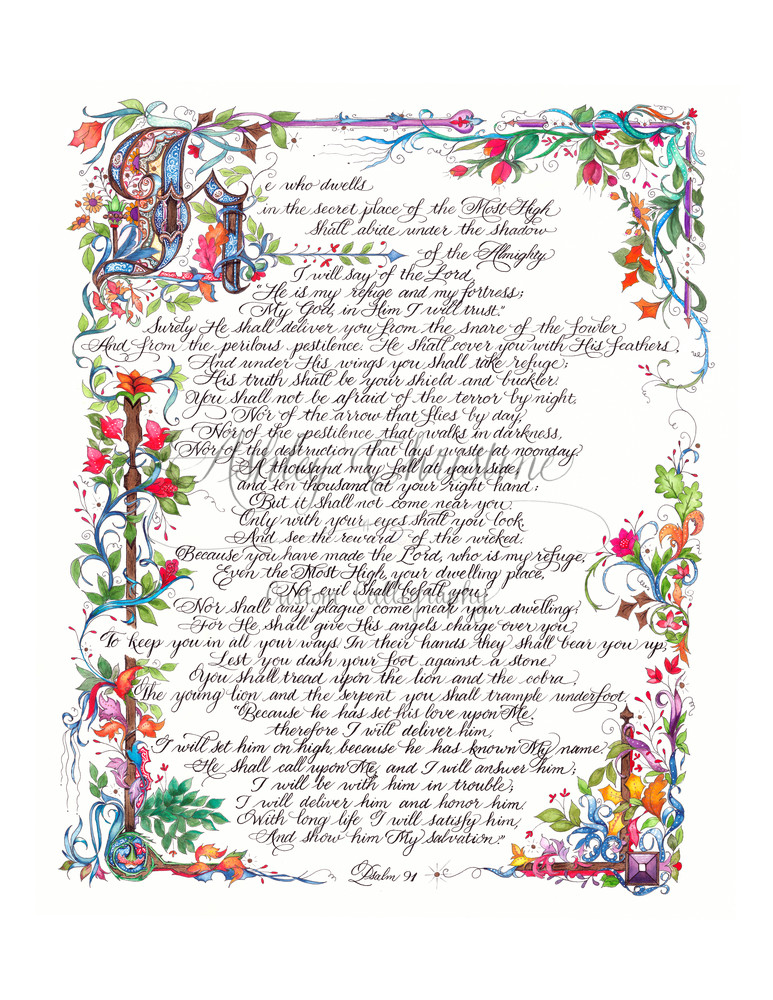 He who dwells
in the secret place of the Most High
shall abide under the shadow
of the Almighty
I will say of the Lord,
"He is my refuge and my fortress;
My God, in Him I will trust."
Surely He shall deliver you from the snare of the fowler
And from the perilous pestilence. He shall cover you with His feathers,
And under His wings you shall take refuge;
His truth shall be your shield and buckler.
You shall not be afraid of the terror by night,
Nor of the arrow that flies by day,
Nor of the pestilence that walks in darkness,
Nor of the destruction that lays waste at noonday.
A thousand may fall at your side,
and ten thousand at your right hand:
But it shall not come near you.
Only with your eyes shall you look,
And see the reward of the wicked.
Because you have made the Lord, who is my refuge,
Even the Most High, your dwelling place,
No evil shall befall you,
Nor shall any plague come near your dwelling;
For He shall give His angels charge over you,
To keep you in all your ways. In their hands they shall bear you up,
Lest you dash your foot against a stone.
You shall tread upon the lion and the cobra,
The young lion and the serpent you shall trample underfoot.
"Because he has set his love upon Me,
therefore I will deliver him,
I will set him on high, because he has known My name.
He shall call upon Me, and I will answer him;
I will be with him in trouble;
I will deliver him and honor him.
With long life I will satisfy him,
And show him My salvation."
Psalm 91